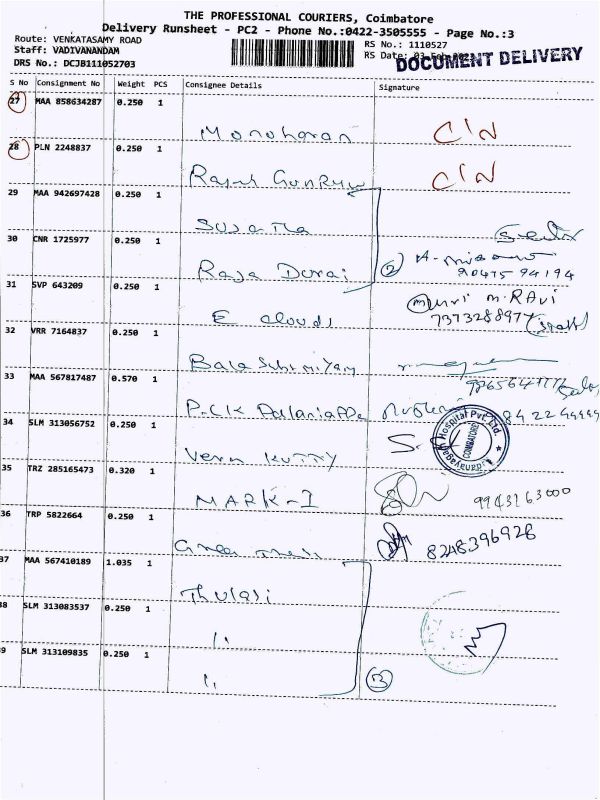 THE PROFESSIONAL COURIERS, Coimbatore
Delivery Runsheet - PC2 - Phone No.:0422-3505555 - Page No.:3
Route: VENKATASAMY ROAD
RS No.: 1110527
Staff: VADIVANANDAM
RS Date:
DOCUMENT DELIVERY
DRS No.: DCJB111052703
S No Consignment No Weight PCS Consignee Details Signature
27 MAA 858634287 0.250 1
Manoharan C/N
28 PLN 2248837 0.250 1
C/N
29 MAA 942697428 0.250 1
Sujatha
30 CNR 1725977 0.250 1
Raja Durai 2
31 SVP 643209 0.250 1
E Cloud M. RAVI
32 VRR 7164837 0.250 1
33 MAA 567817487 0.570 1
34 SLM 313056752 0.250 1
Hospital Pvt Ltd
COIMBATORE
35 TRZ 285165473 0.320 1
MARK-I
36 TRP 5822664 0.250 1
8248396928
37 MAA 567410189 1.035 1
Thulasi
38 SLM 313083537 0.250 1
"
39 SLM 313109835 0.250 1
" 3